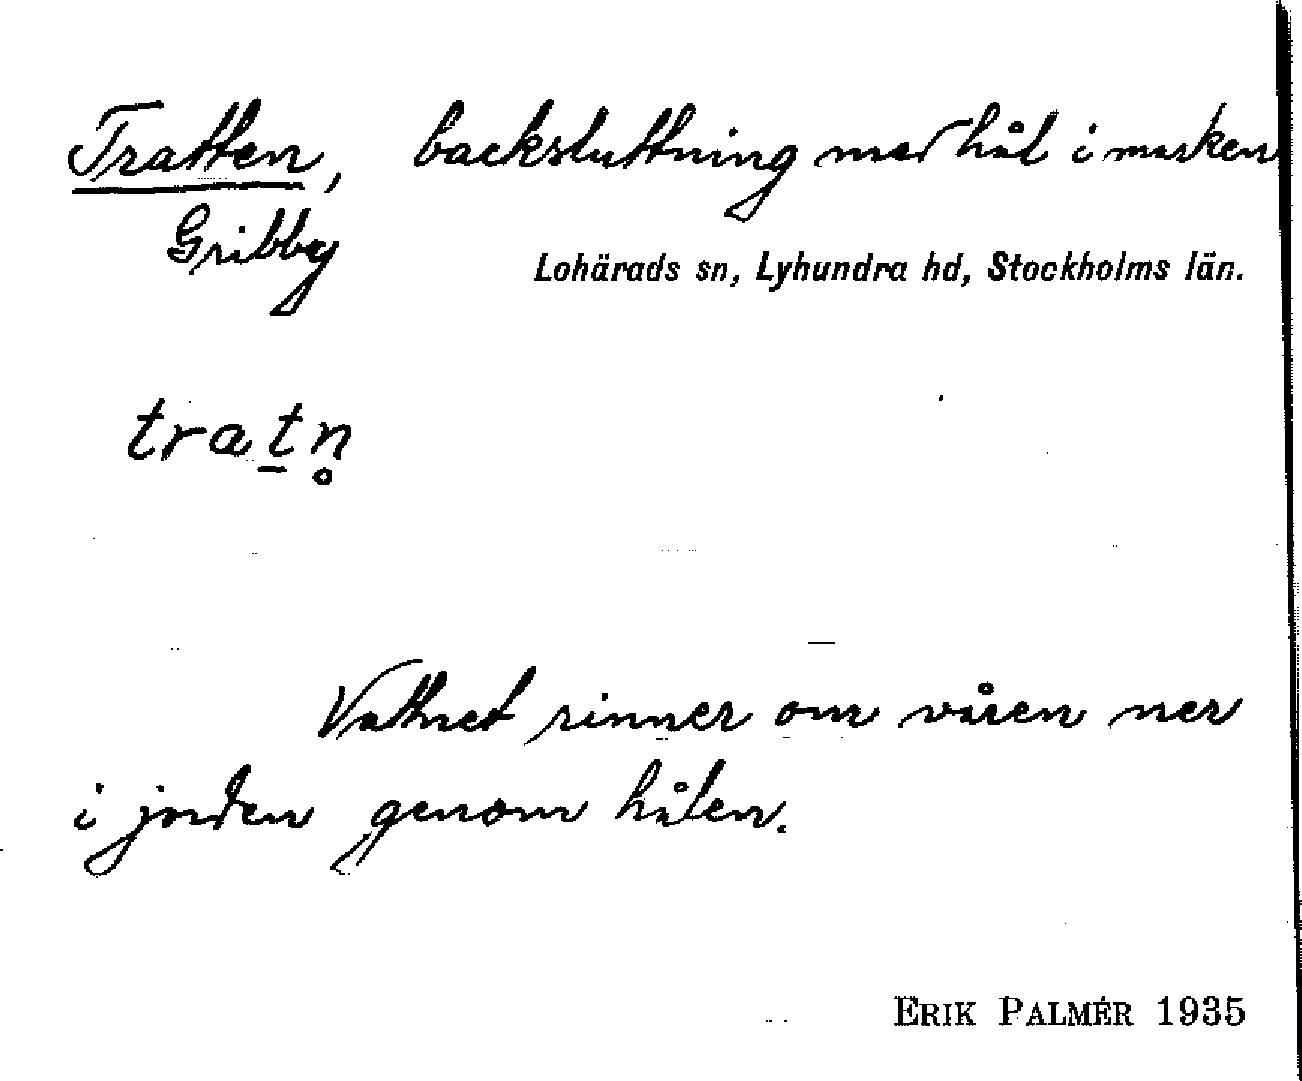 Tratten, backsluttning med hål i marken
Gribby
Lohärads sn, Lyhundra hd, Stockholms län.
trat̲n̥
Vattnet rinner om våren ner
i jorden genom hålen.
ERIK PALMÉR 1935